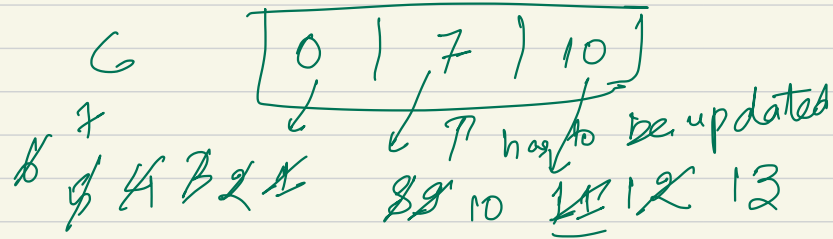 6 0 | 7 | 10
7 has to be updated
6 5 4 3 2 1 8 9 10 11 12 13